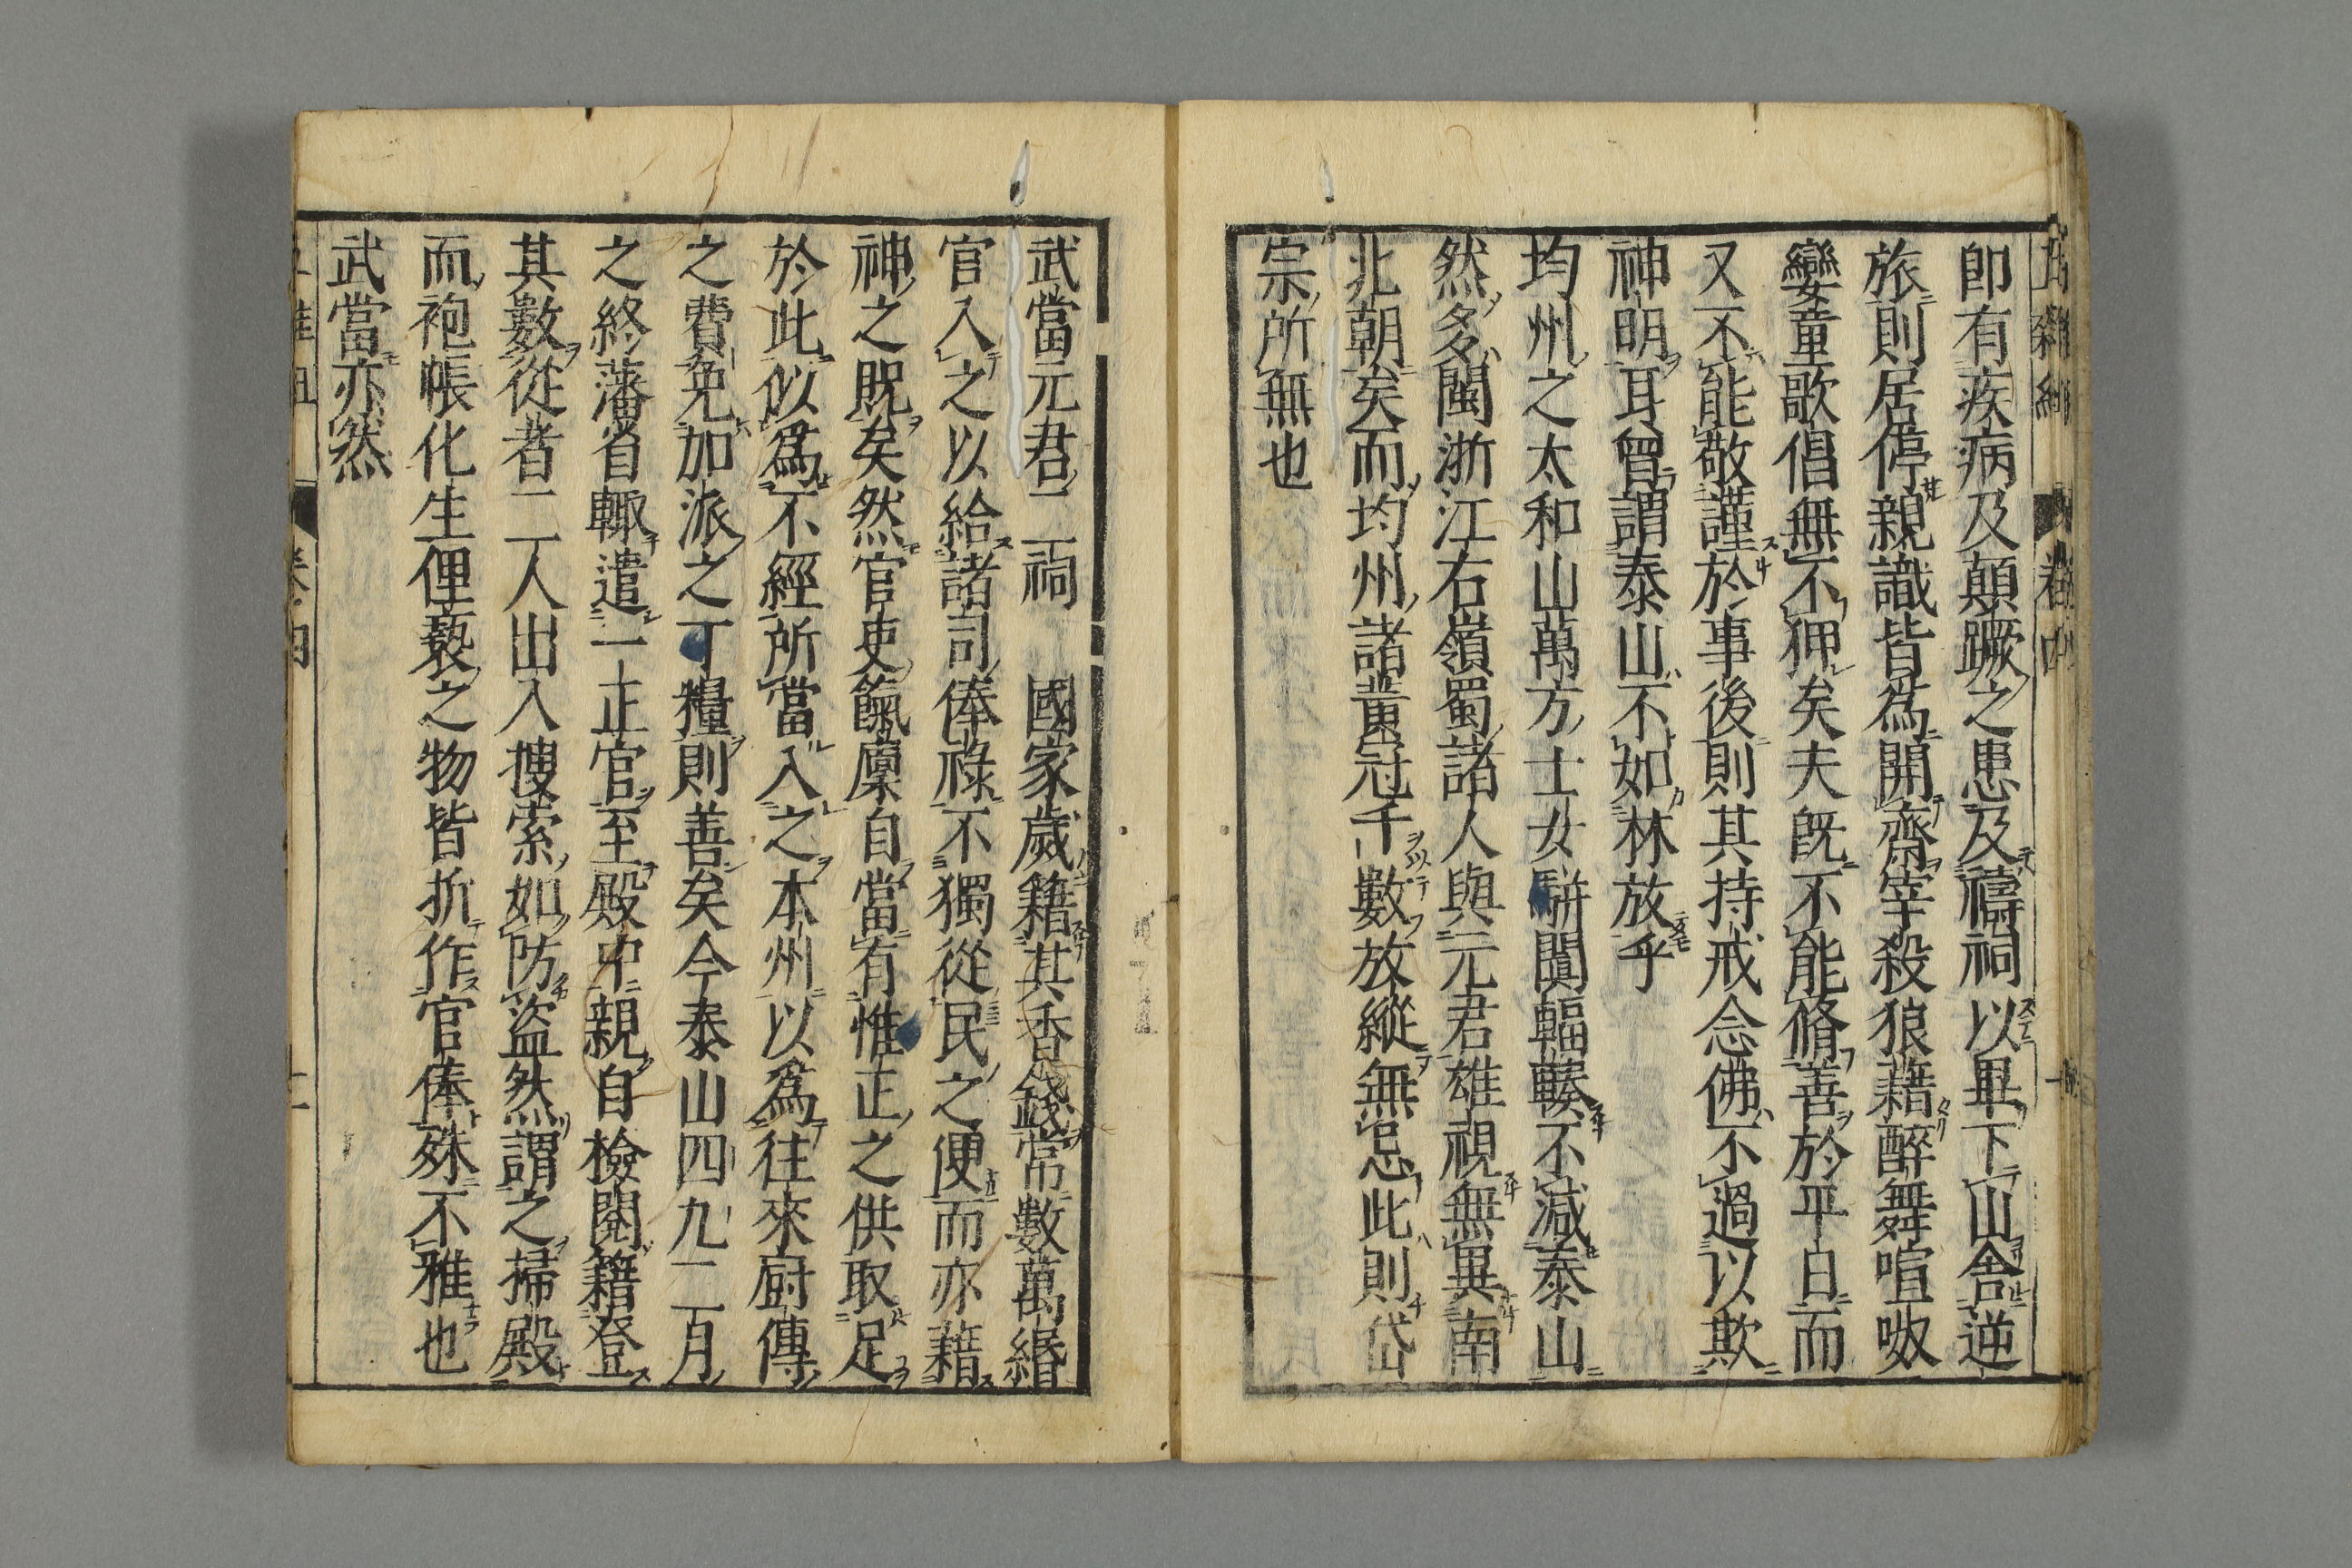 即有疾病及顛蹶之患及禱祠以畢下山舎逆
旅則居停親識皆為開齋宰殺狼藉醉舞喧呶
孌童歌倡無不狎矣夫既不能脩善於平日而
又不能敬謹於事後則其持戒念佛不過以欺
神明耳曾謂泰山不如林放乎
均州之太和山萬方士女駢闐輻輳不減泰山
然多閩浙江右嶺蜀諸人與元君雄視無異南
北朝矣而均州諸黃冠千數放縱無忌此則岱
宗所無也
武當元君二祠　國家歲籍其香錢常數萬緡
官入之以給諸司俸祿不獨從民之便而亦藉
神之貺矣然官吏餼廩自當有惟正之供取足
於此似為不經所當入之本州以為往來厨傳
之費免加派之丁糧則善矣今泰山四九二月
之終藩省輒遣一正官至殿中親自檢閱籍登
其數從者二人出入搜索如防盜然謂之掃殿
而袍帳化生俚褻之物皆折作官俸殊不雅也
武當亦然